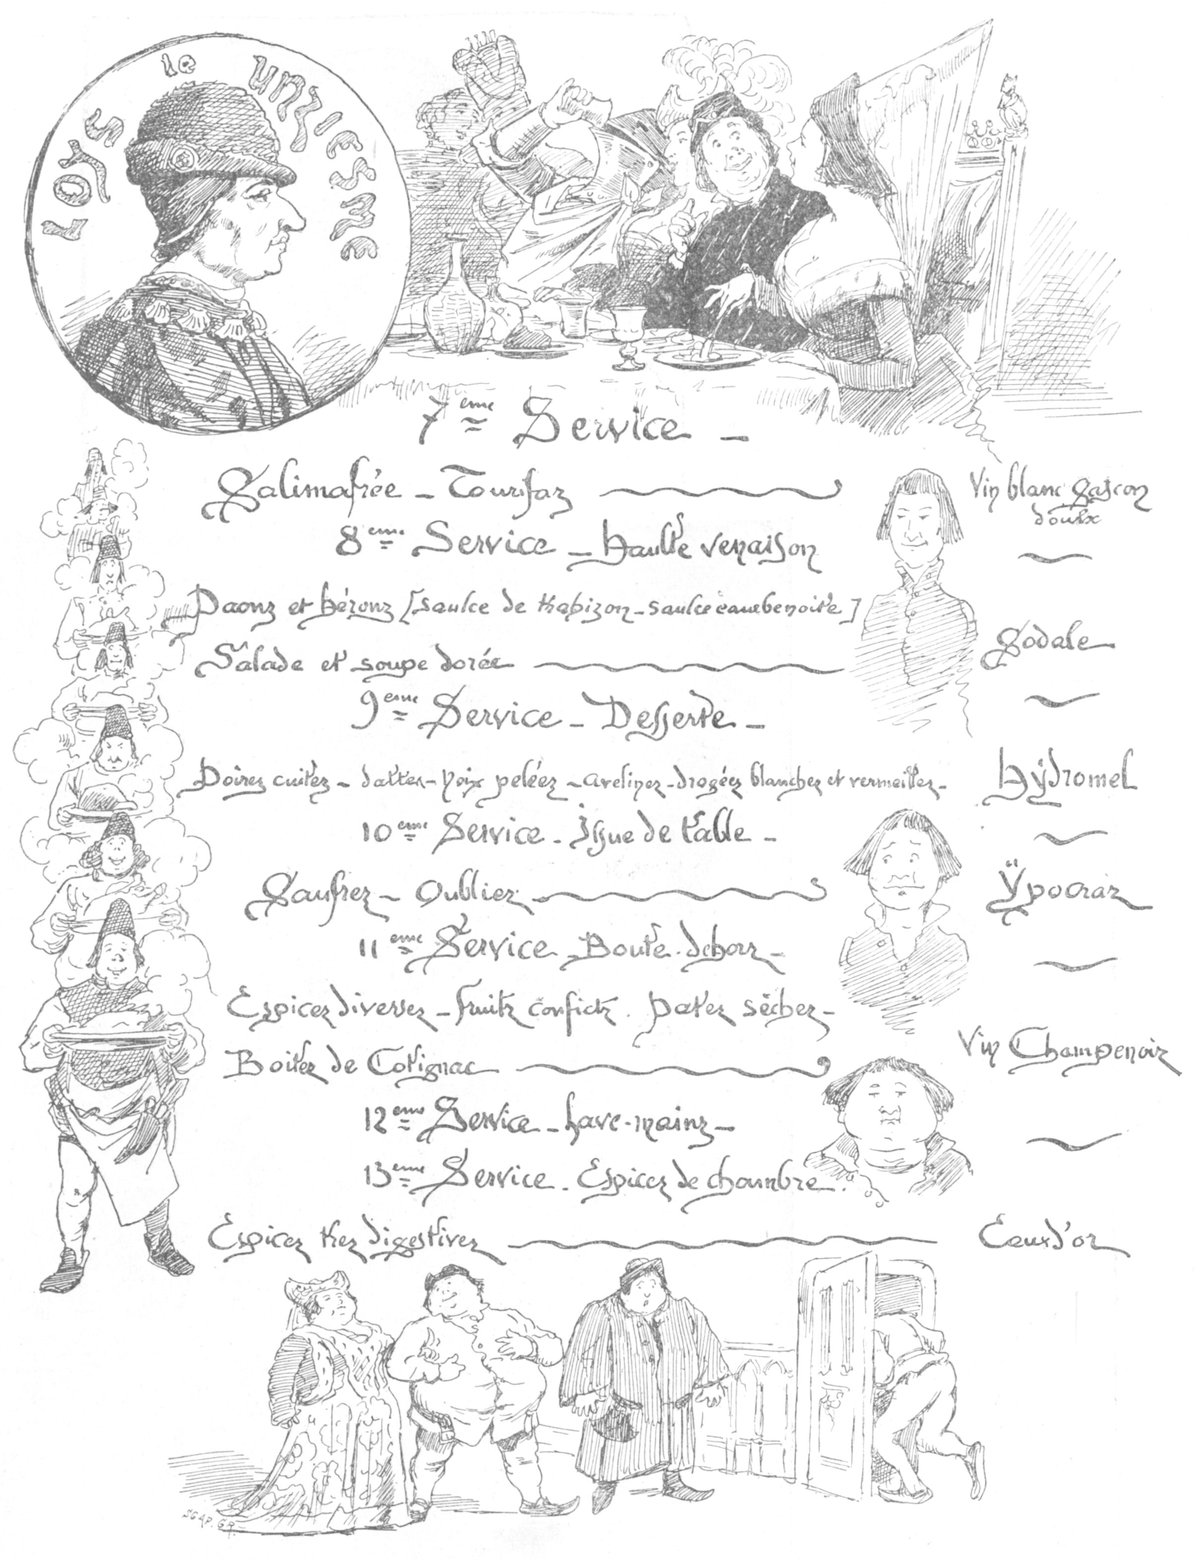 LOYS le UNZIESME
7eme Service –
Galimafrée – Tourifaz
Vin blanc gascon
doulx
8eme Service – haulte venaison
Paonz et héronz [saulce de trahizon – saulce eauebenoite]
Salade et soupe dorée
Godale
9eme Service – Desserte –
Poirez cuitez – dattez – Noix peléez – avelinez – drogéez blanchez et vermeillez –
Hÿdromel
10eme Service – Issue de table –
Gaufrez – Oubliez
Ÿpocraz
11eme Service – Boute-dehorz –
Espicez diversez – fruitz confictz. Patez sèchez –
Boitez de Cotignac
Vin Champenoiz
12eme Service – Lave-mainz –
13eme Service – Espicez de chambre.
Espicez trez digestivez
Eaux d'or